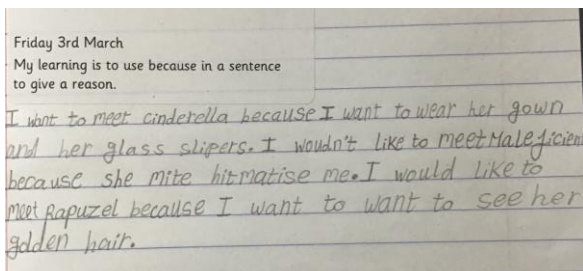 Friday 3rd March
My learning is to use because in a sentence
to give a reason.
I want to meet cinderella because I want to wear her gown
and her glass slipers. I woudn't like to meet Maleficient
because she mite hitmatise me. I would like to
meet Rapuzel because I want to want to see her
golden hair.